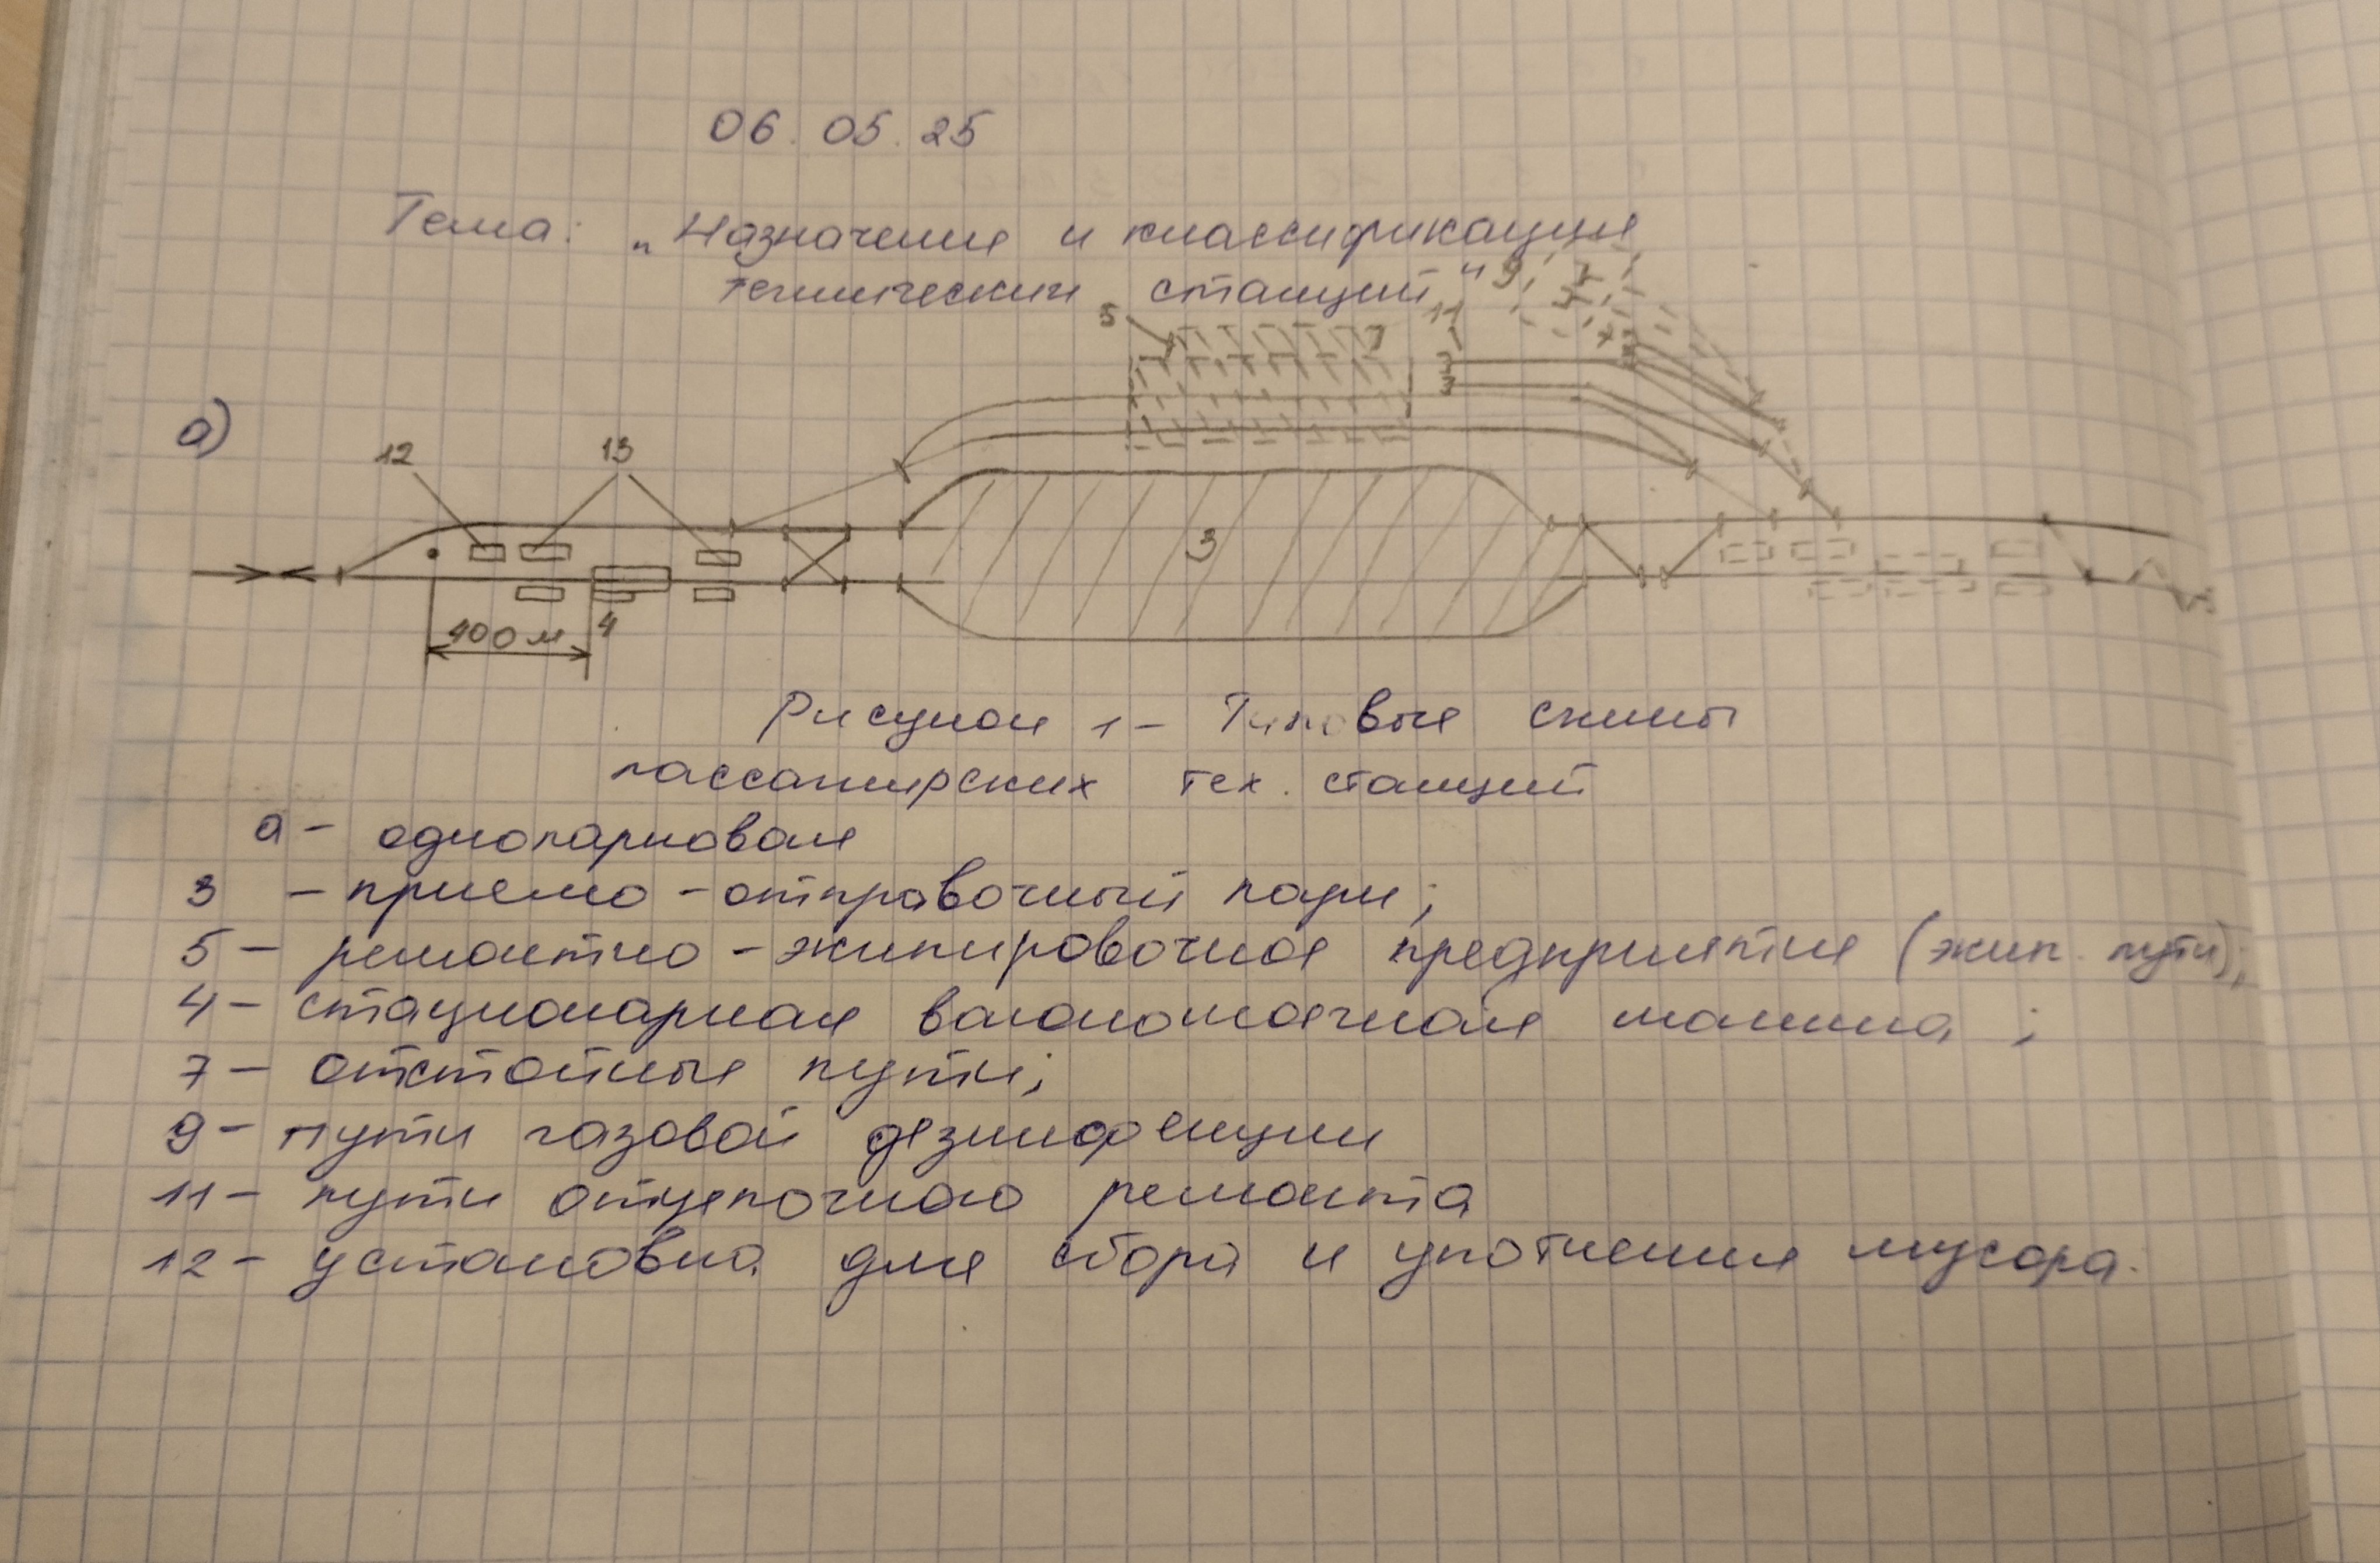 06.05.25
Тема: „Назначение и классификация
технических станций"
9, 7
5 11
7
3
3
а)
12 13
3
4
100 м
Рисунок 1 – Типовые схемы
пассажирских тех. станций
а – однопарковая
3 – приемо-отправочный парк;
5 – ремонтно-экипировочное предприятие (экип. пути);
4 – стационарная вагономоечная машина;
7 – отстойные пути;
9 – пути газовой дезинфекции
11 – пути отцепочного ремонта
12 – установка для сбора и уплотнения мусора.